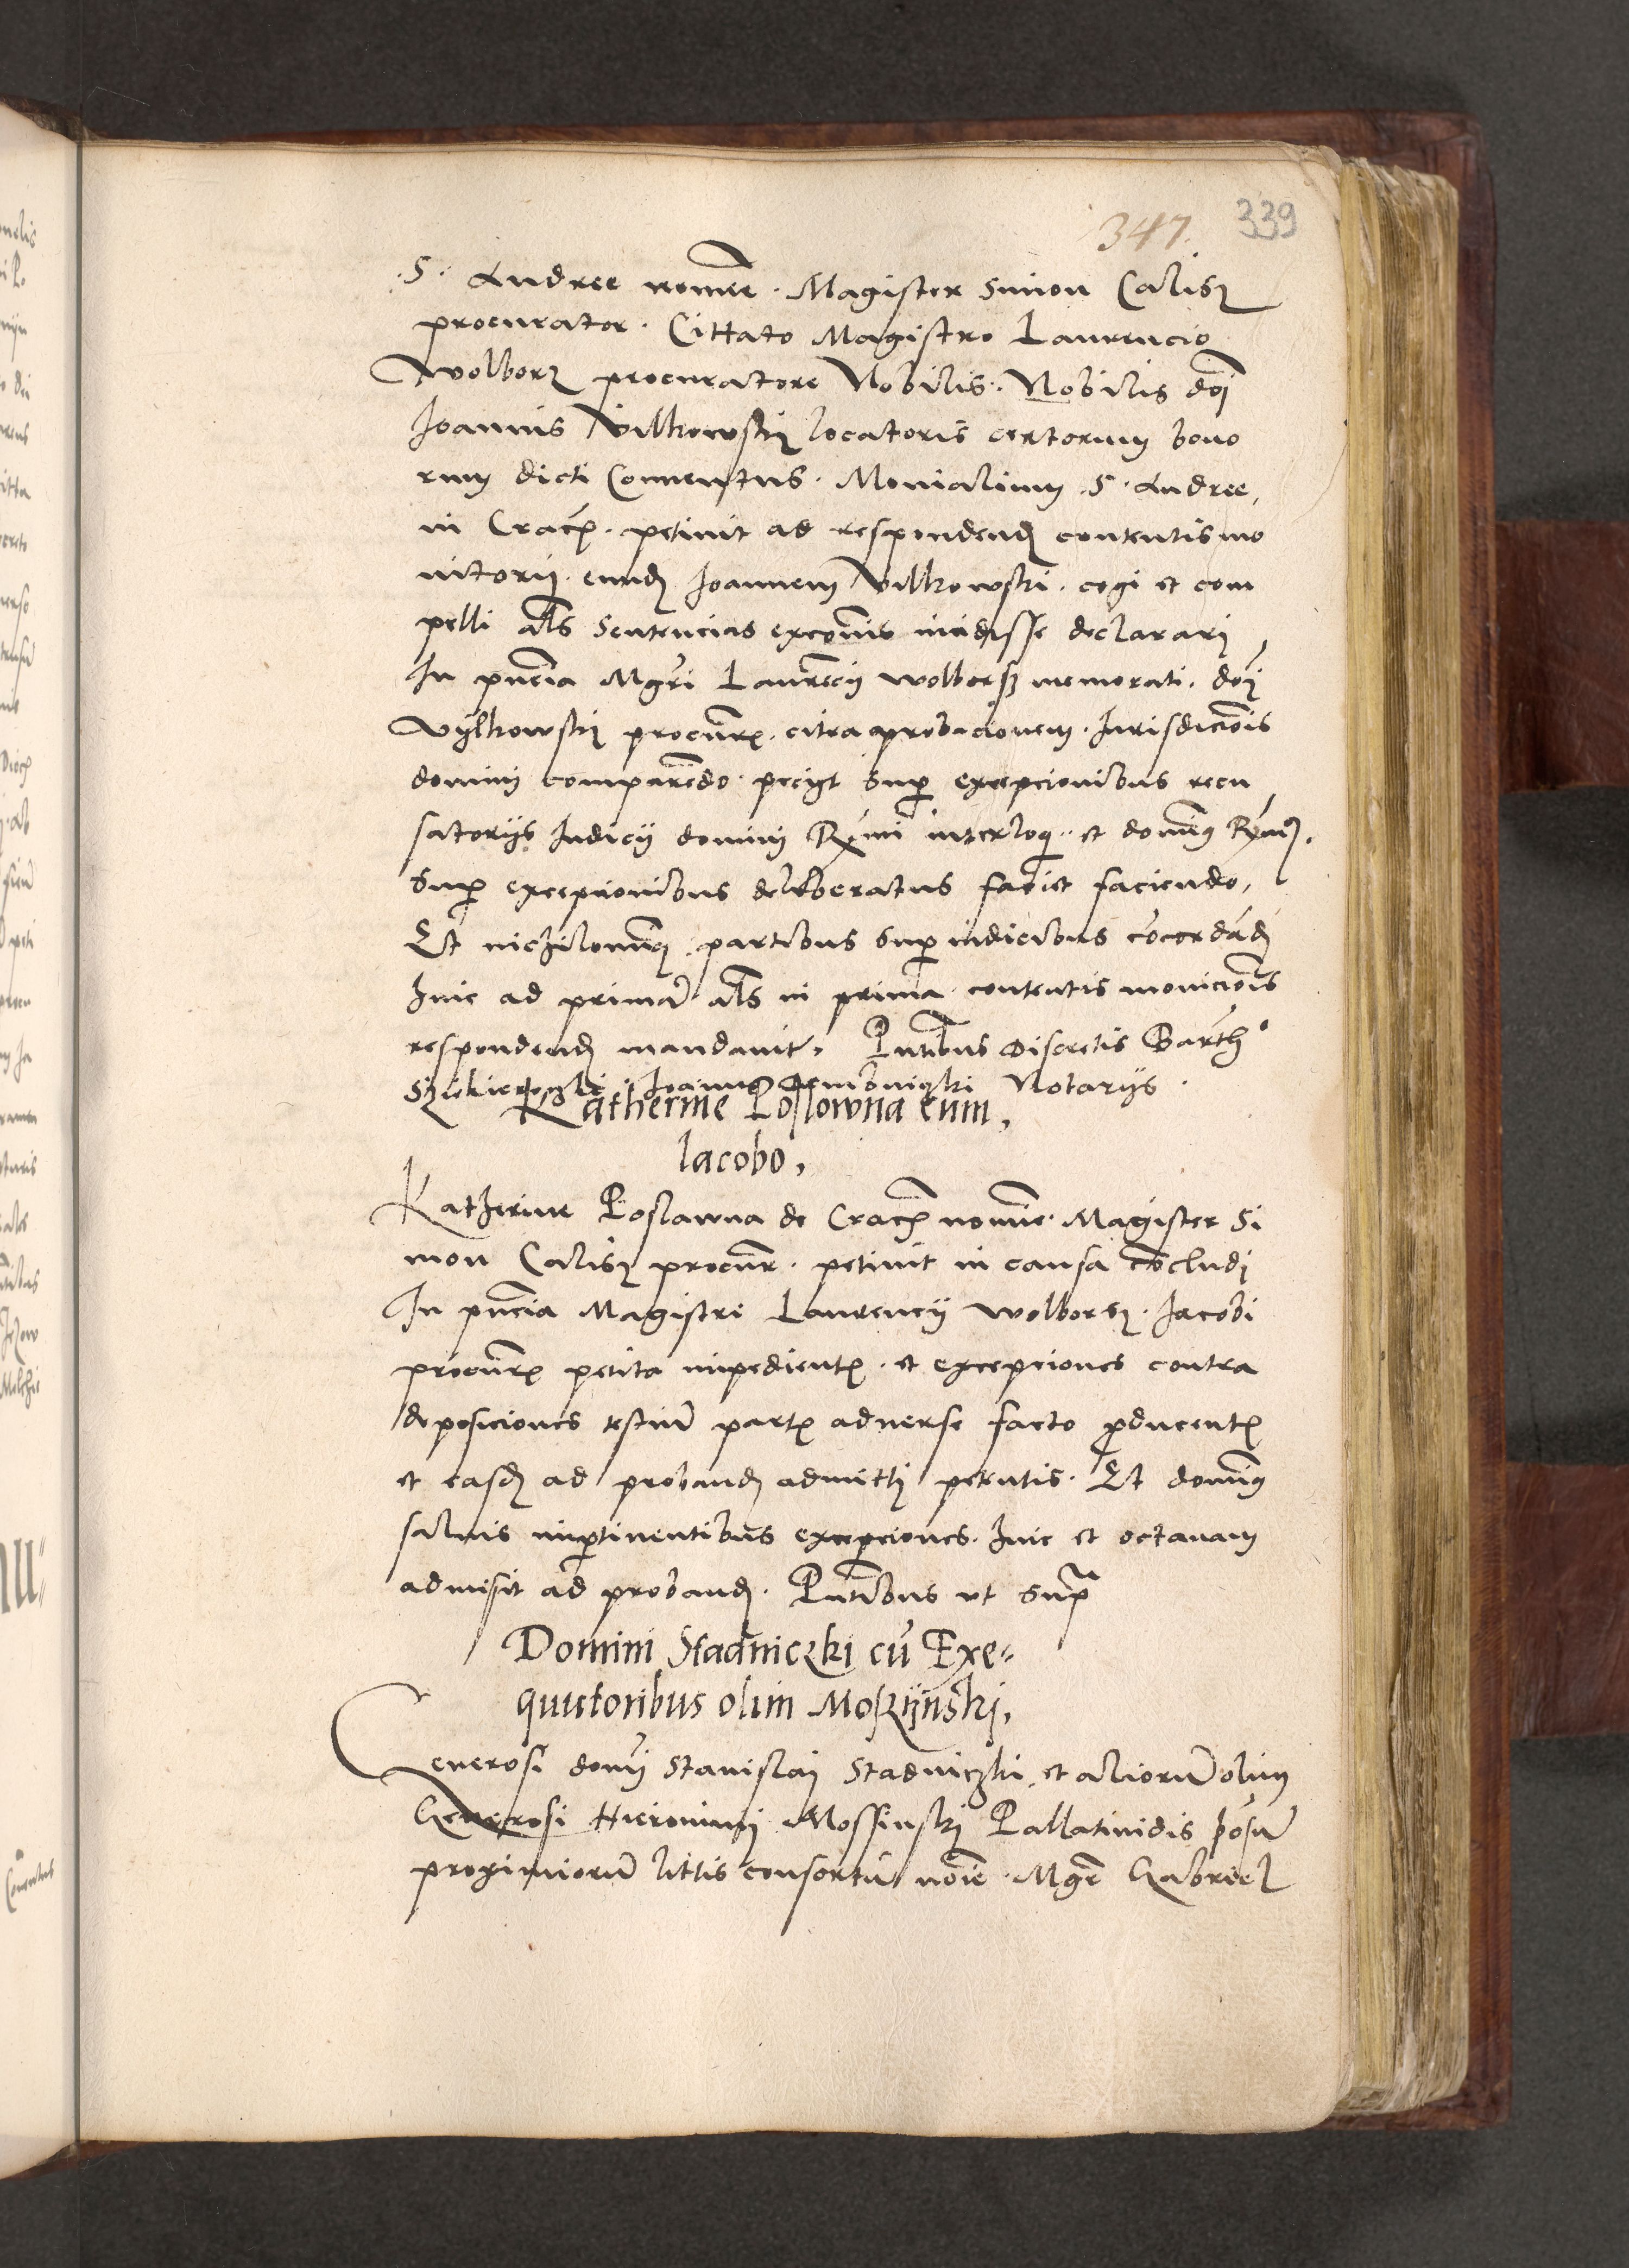 347. 339
.S. Andree nomine. Magister Simon Calisz
procurator. Cittato Magistro Laurencio
Wolborz procuratore Nobilis. Nobilis dni
Joannis Vilkowski locatoris certorum bono
rum dicti Conuentus. Monialium .S. Andree,
in Crac. petiuit ad respondend contentis mo
nitorij. eund Joannem Vilkowski. cogi et com
pelli als Sentencias excomnis incidisse declarari
In pncia Mgri Laurecij Wolborsz memorati. dni
Vylkowski procur. citra aprobacionem. Jurisdicionis
domini comparendo. peciyt Sup excepcionibus recu
satorijs Judicij domini Rmi interloq. et dominus Rmus.
Sup excepcionibus deliberatus faciet faciendo,
Et nichilominus partibus Sup iudicibus cocordad
hinc ad primam als in prima contentis monicionis
respondend mandauit, Pntibus Discretis Barth
Joannes Notarijs.
Katherine Poslowna cum,
Iacobo,
Katherine Poslawna de Crac nomine. Magister Si
mon Calisz procur. petiuit in causa cocludi
In pncia Magistri Laurencij Wolborsz. Jacobi
procur petita impedient. et excepciones contra
deposiciones testium part aduerse facto producent
et easd ad proband admitti petentis. Et dominus
saluis impertinentibus excepciones. hinc et octauam
admisit ad proband. Pntibus ut Supra
Domini Stadniczki cu Exe=
quutoribus olim Moszijnski,
Generosi domi Stanislai Stadniczki et aliorum olim
Generosi Hieronimi Mossinski Pallatinidis
proximiorum littis consortum noie. Mgr Gabriel